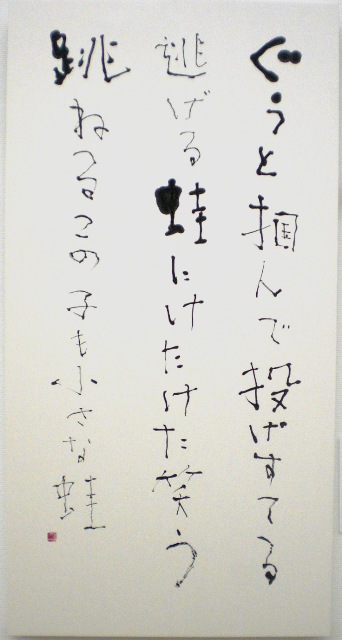 ぐうと掴んで投げすてる
逃げる蛙にけたけた笑う
跳ねるこの子も小さな蛙